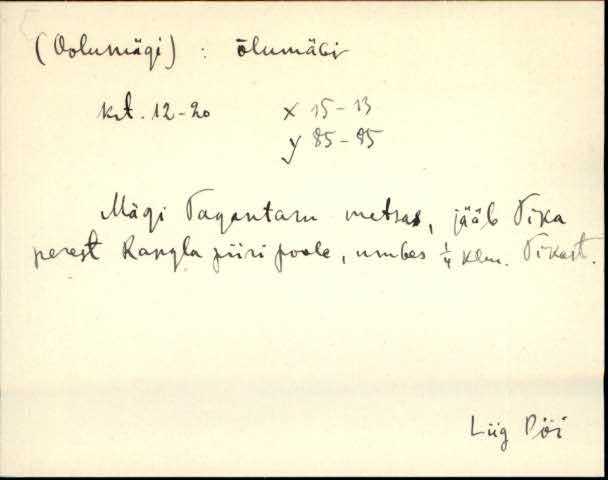 (Oolumägi) : ōlumäGi
krt. 12-20 x 15-13
y 85-85
Mägi Tagantaru metsas, jääb Tika
perest Rangla piiri poole, umbes 1/4 klm. Tikast.
Liig Pöi